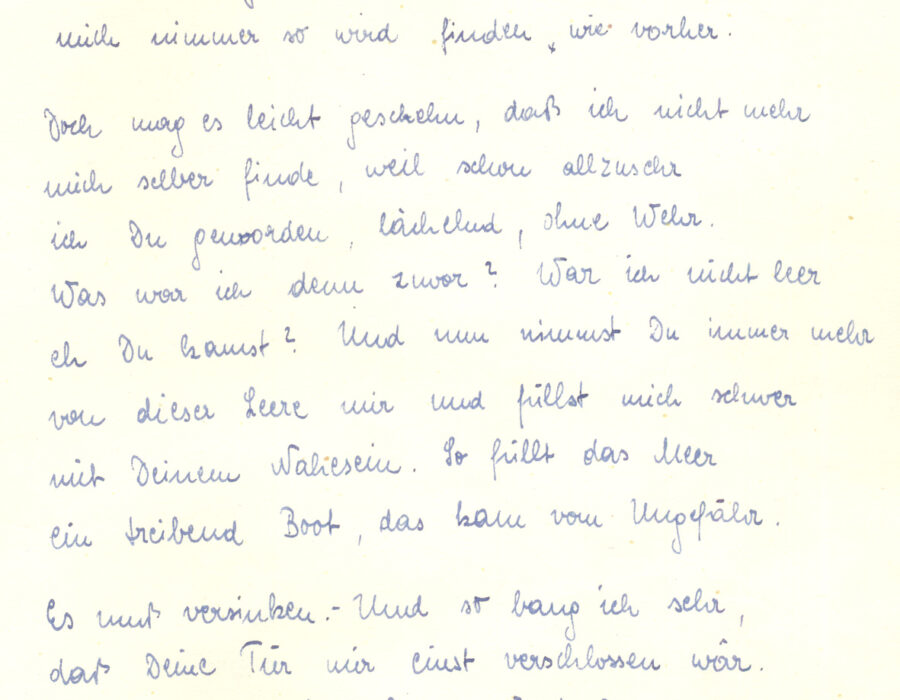 mich nimmer so wird finden, wie vorher.
Doch mag es leicht geschehn, daß ich nicht mehr
mich selber finde, weil schon allzusehr
ich Du geworden, lächelnd, ohne Wehr.
Was war ich denn zuvor? War ich nicht leer
eh Du kamst? Und nun nimmst Du immer mehr
von dieser Leere mir und füllst mich schwer
mit Deinem Nahesein. So füllt das Meer
ein treibend Boot, das kam vom Ungefähr.
Es muß versinken.- Und so bang ich sehr,
daß Deine Tür mir einst verschlossen wär.